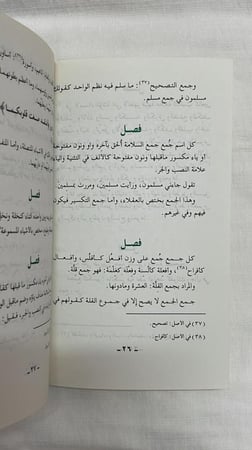 وجمع التصحيح(٣٧): ما سلم فيه نظم الواحد كقولك
مسلمون في جمع مسلم.
فصل
كل اسم جُمع جمع السلامة أُلحق بآخره واو ونون مفتوحة
او ياء مكسور ماقبلها ونون مفتوحة كالألف في التثنية والياء
علامة النصب والجر.
تقول جاءني مسلمون، ورأيت مسلمين، ومررت بمسلمين
وهذا الجمع يختص بالعقلاء، وأما جمع التكسير فيكون
فيهم وفي غيرهم.
فصل
كل جمع جُمع على وزن افعُل كأفلس، وافعال
كافراخ(٣٨)، وافعلة كألسنة وفعلة كغلمة: فهو جمع قلّة.
والمراد بجمع القلّة: العشرة ومادونها.
جمع الجمع لا يصح إلا في جموع القلة كقولهم في
(٣٧) في الأصل: تصحيح.
(٣٨) في الأصل: كافراج.
-٢٦-
فصل
فصل
-٢٧-